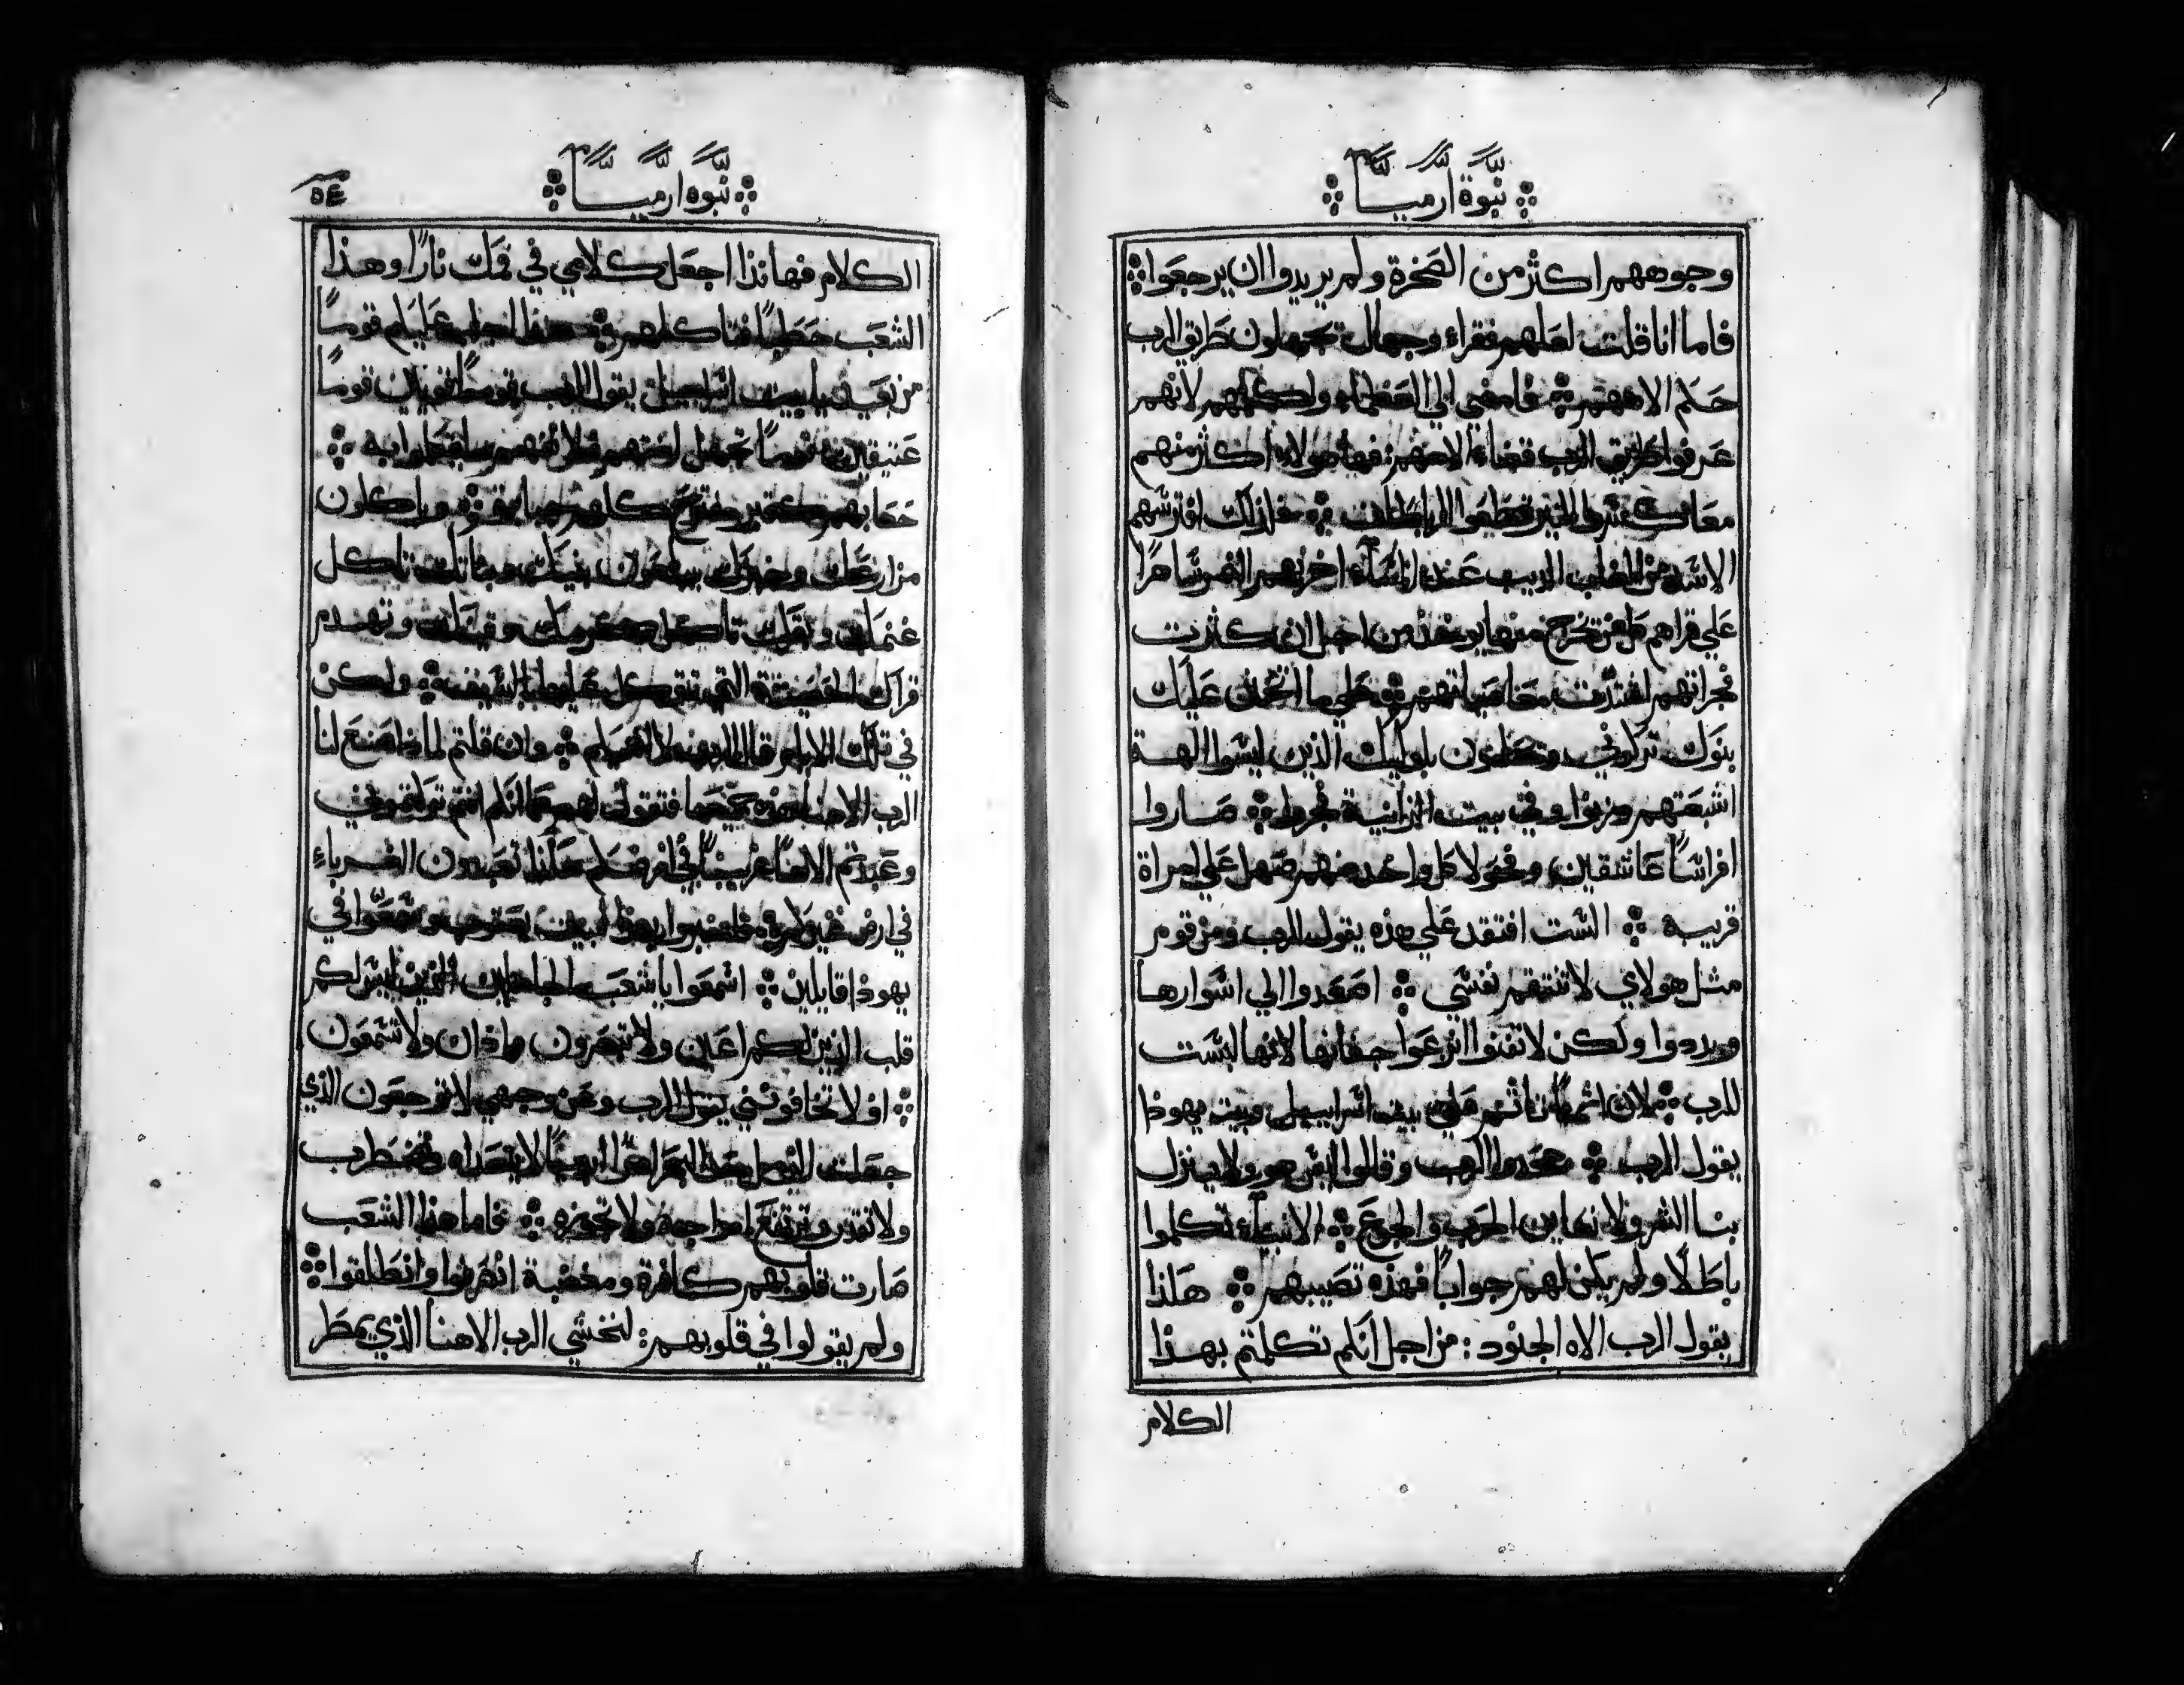 نبوة ارميا
وجوههم اكثر من الصخرة ولم يريدوا ان يرجعوا
فاما انا قلت لعلهم فقراء وجهال يجهلون طريق الرب
حكم الاههم فامضي الي العظماء واكلمهم لانهم
عرفوا طريق الرب قضاء الاههم فها هولاء اكثر منهم
معا كسروا النير قطعوا الرباطات فلذلك افترسهم
الاسد من الغاب الديب عند المساء اخربهم النمر ساهرا
علي قراهم كل من يخرج منها يوخذ من اجل ان كثرت
فجراتهم اشتدت معاصياتهم علي ما اتحنن عليك
بنوك تركوني ويحلفون باوليك الذين ليسوا الهة
اشبعتهم وزنوا وفي بيت الزانية فجروا صاروا
افراسا عاشقين وفحولا كل واحد منهم صهل علي امراة
قريبه الست افتقد علي هذه يقول الرب ومن قوم
مثل هولاي لا تنتقم نفسي اصعدوا الي اسوارها
وبددوا ولكن لا تفنوا انزعوا جفانها لانها ليست
للرب لان اثما اثم علي بيت اسراييل وبيت يهوذا
يقول الرب جحدوا الرب وقالوا ليس هو ولا ينزل
بنا الشر ولا نعاين الحرب والجوع الانبياء تكلموا
باطلا ولم يكن لهم جوابا فهذه تصيبهم هكذا
يقول الرب الاه الجنود : من اجل انكم تكلمتم بهذا
الكلام
نبوه ارميا
٥٤
الكلام فهانذا اجعل كلامي في فمك نارا وهذا
الشعب حطبا فتاكلهم هنذا اجلب عليكم قوما
من بعيد يا بيت اسراييل يقول الرب قوما قويين قوما
عتيقين قوما تجهل لغتهم ولا تفهم ما يتكلموا به
جعابهم كقبر مفتوح كلهم جبابرة وياكلون
مزارعك وخبزك يبلعون بنيك وبناتك تاكل
غنمك وبقرك تاكل كرمك وتينك وتهدم
قراك الحصينة التي تتوكل عليها بالسيف ولكن
في تلك الايام قال الرب لا افنيكم وان قلتم لماذا صنع لنا
الرب الاهنا هذه جميعها فتقول لهم كما انكم انتم تركتموني
وعبدتم الاها غريبا في ارضكم هكذا تعبدون الغرباء
في ارض غير لكم فاخبروا بهذا لبيت يعقوب وسمعوا في
يهوذا قايلين اسمعوا يا شعب الجاهلين الذين ليس لكم
قلب الذين لكم اعين ولا تبصرون واذان ولا تسمعون
اولا تخافونني يقول الرب ومن وجهي لا توجعون الذي
جعلت الرمل حدا للبحر امرا ابديا لا يتعداه وتضطرب
ولا تقدر وترتفع امواجه ولا تجوزه فاما هذا الشعب
صارت قلوبهم كافرة ومغضبة انصرفوا وانطلقوا
ولم يقولوا في قلوبهم : لنخشي الرب الاهنا الذي يمطر